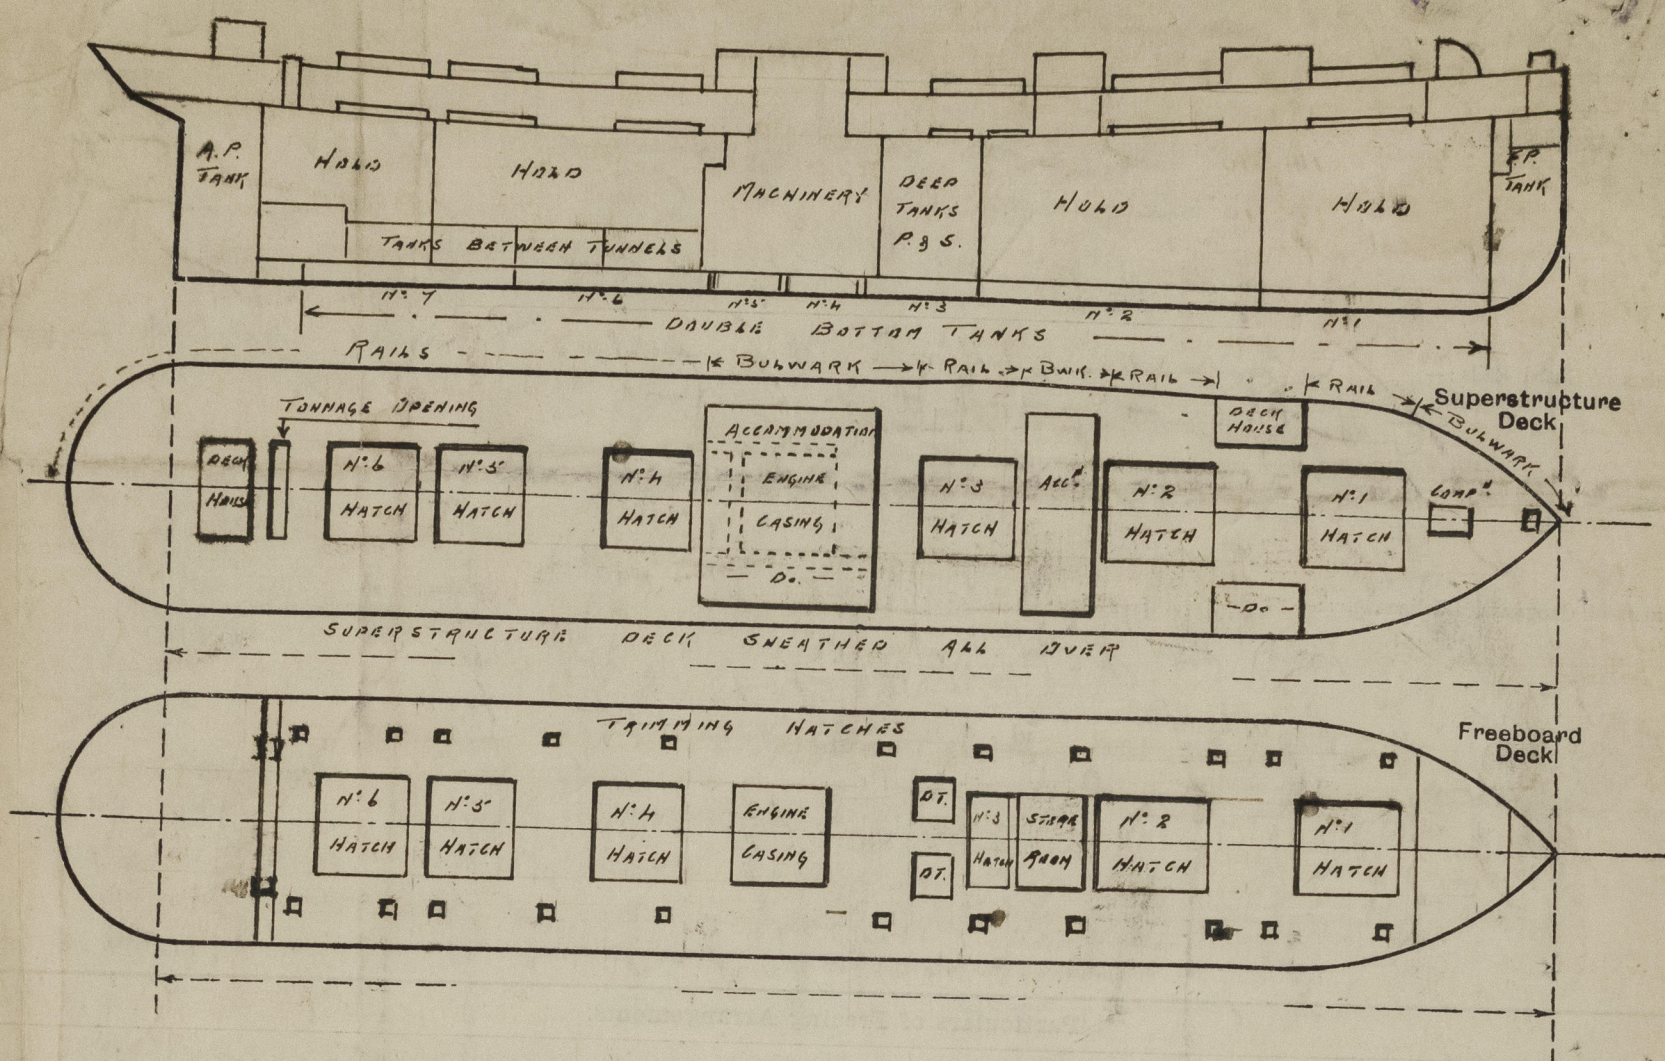 A.P.
TANK
HOLD
HOLD
MACHINERY
DEEP
TANKS
P. & S.
HOLD
HOLD
F.P.
TANK
TANKS BETWEEN TUNNELS
Nº 7
Nº 6
Nº 5
Nº 4
Nº 3
Nº 2
Nº 1
DOUBLE BOTTOM TANKS
RAILS
BULWARK
RAIL
BWK.
RAIL
RAIL
BULWARK
Superstructure
Deck
TONNAGE OPENING
DECK
HOUSE
Nº 6
HATCH
Nº 5
HATCH
Nº 4
HATCH
ACCOMMODATION
ENGINE
CASING
— Do. —
Nº 3
HATCH
ACCN.
Nº 2
HATCH
DECK
HOUSE
- Do -
Nº 1
HATCH
COMPN.
SUPERSTRUCTURE DECK SHEATHED ALL OVER
TRIMMING HATCHES
Freeboard
Deck
Nº 6
HATCH
Nº 5
HATCH
Nº 4
HATCH
ENGINE
CASING
DT.
DT.
Nº 3
HATCH
STORE
ROOM
Nº 2
HATCH
Nº 1
HATCH